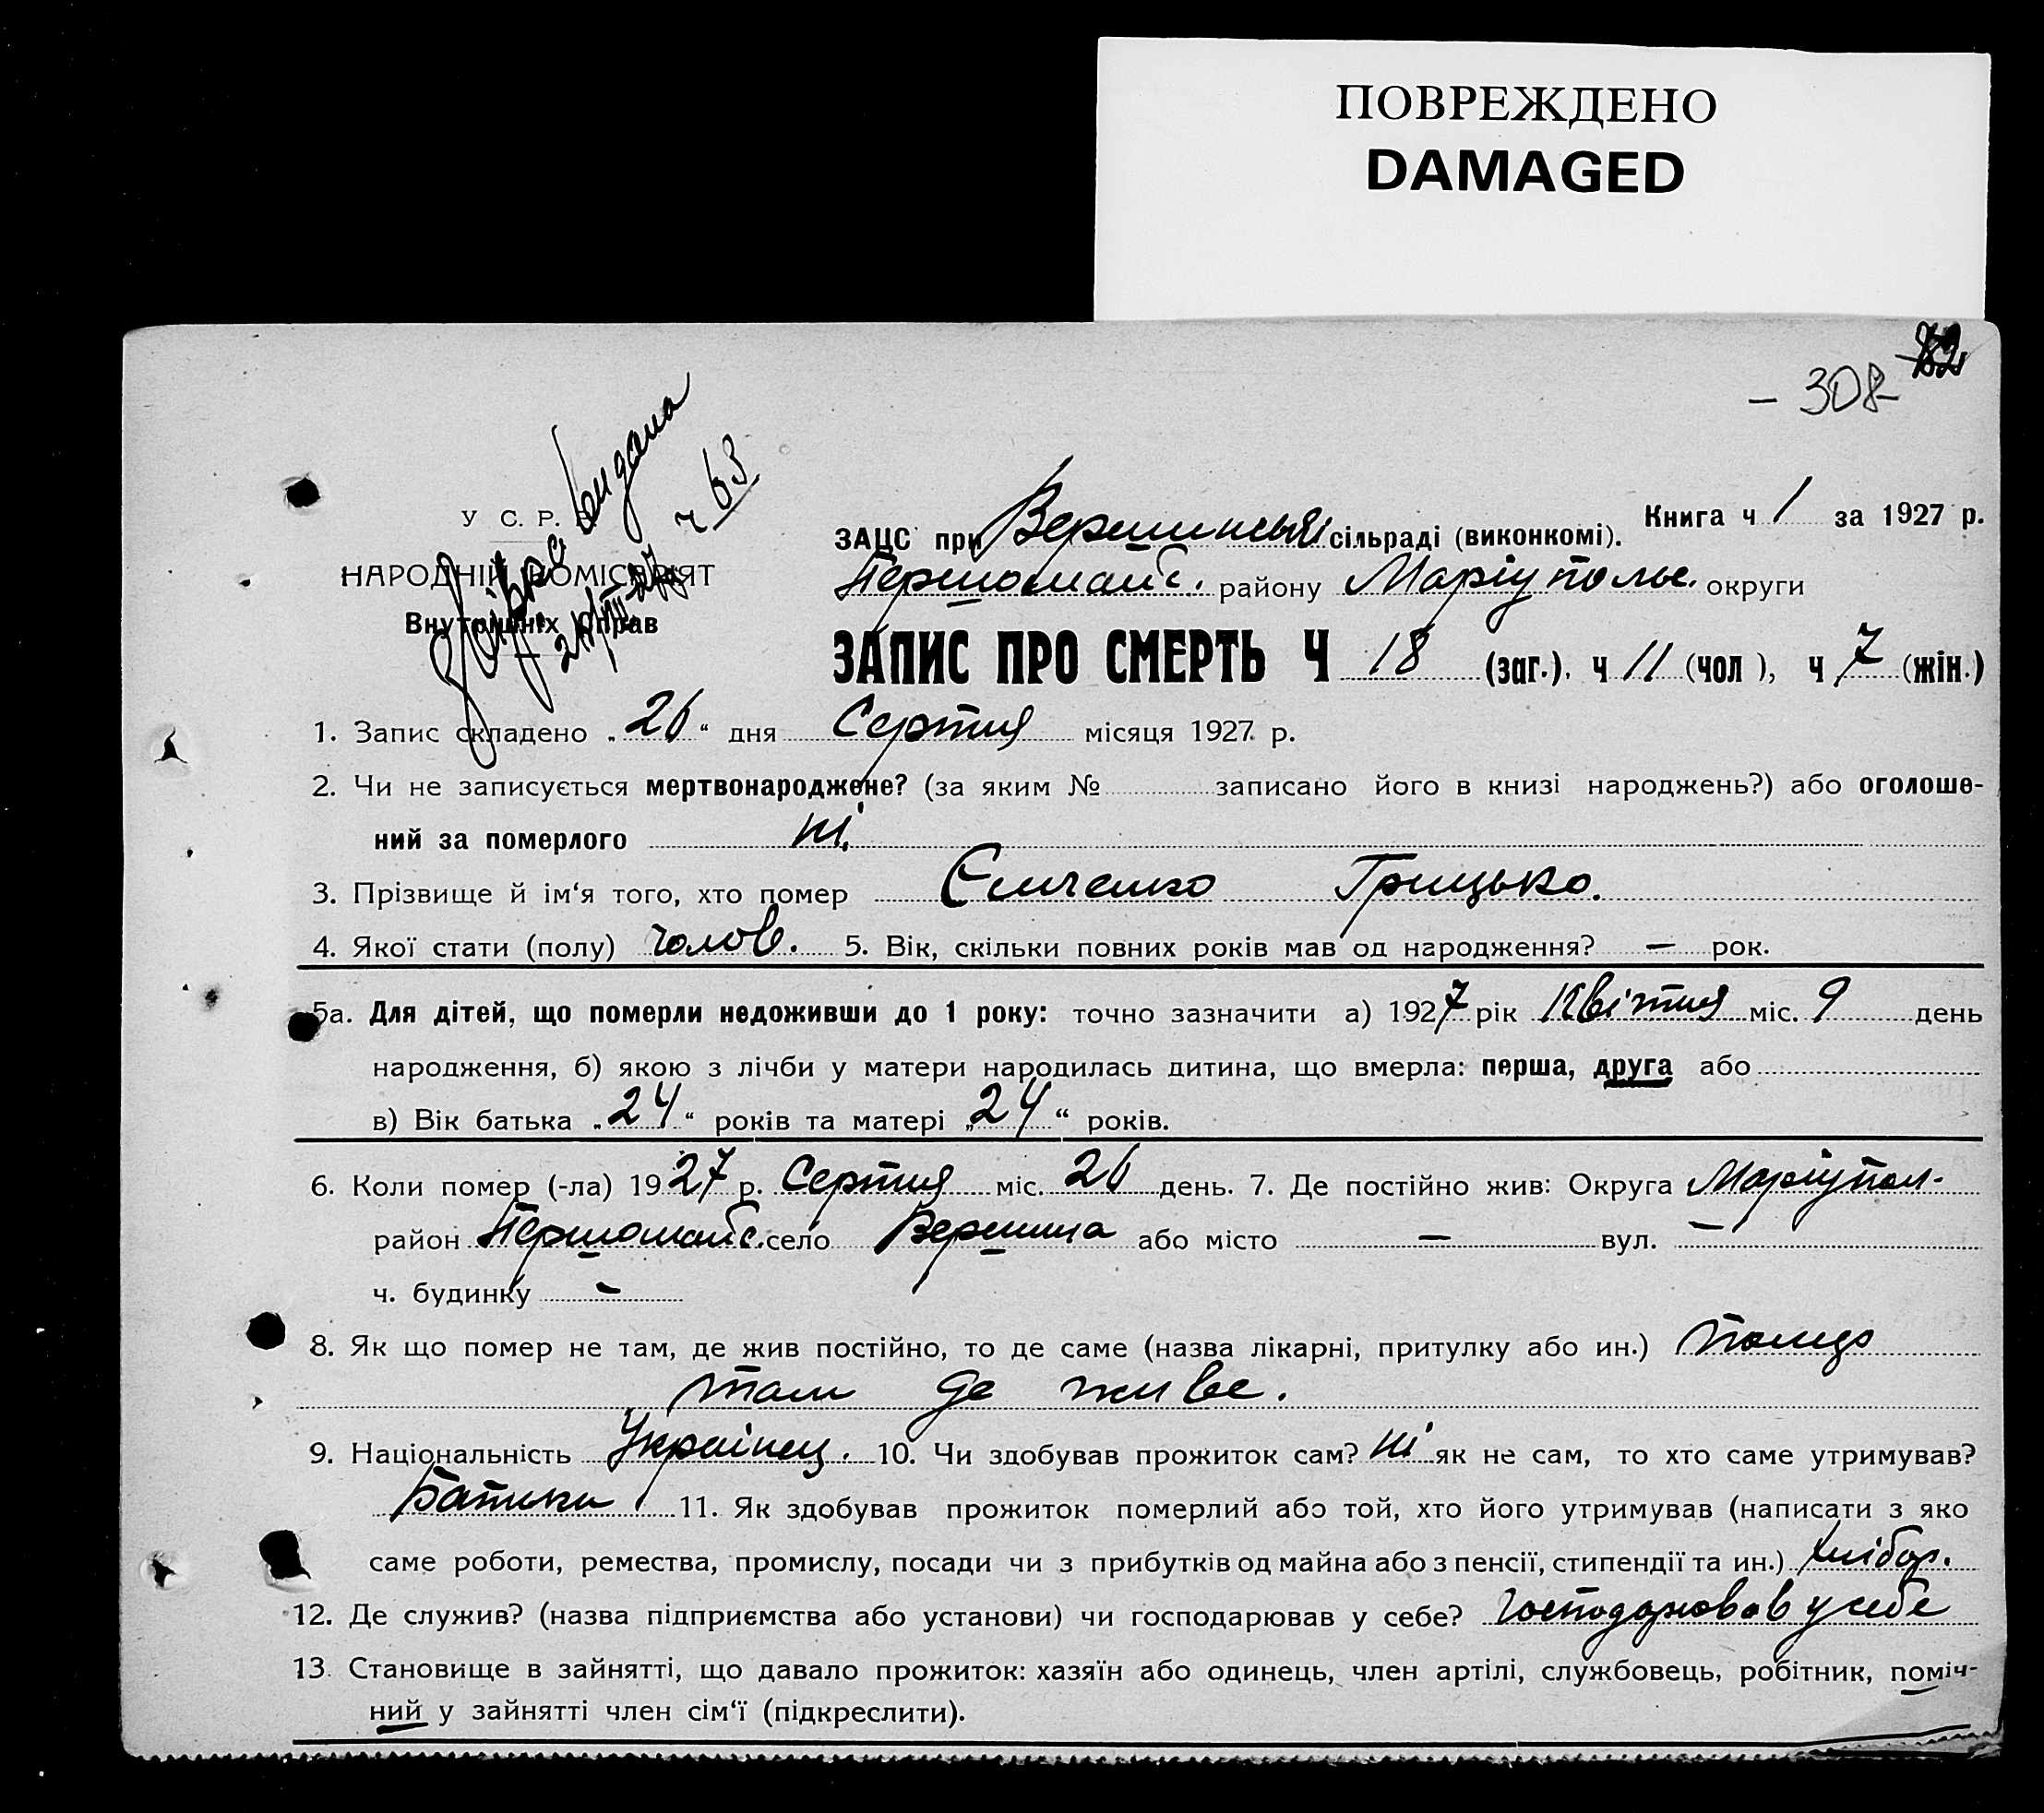 ПОВРЕЖДЕНО
DAMAGED
- 308-
У С. Р. Р.
НАРОДНІЙ КОМІСАРІЯТ
Внутрішніх Справ
видана
ч 63.
Книга ч 1 за 1927 р.
ЗАЦС при Вершинській сільраді (виконкомі).
Першомайс. району Маріупольс. округи
ЗАПИС ПРО СМЕРТЬ Ч 18 (заг.). ч 11 (чол ), ч 7 (жін.)
1. Запис складено „ 26 “ дня Серпня місяця 1927 р.
2. Чи не записується мертвонароджене? (за яким № записано його в книзі народжень?) або оголоше-
ний за померлого ні.
3. Прізвище й ім‘я того, хто помер Ємченко Грицько.
4. Якої стати (полу) чолов. 5. Вік, скільки повних років мав од народження? — рок.
5а. Для дітей, що померли недоживши до 1 року: точно зазначити а) 1927 рік Квітня міс. 9 день
народження, б) якою з лічби у матери народилась дитина, що вмерла: перша, друга або
в) Вік батька „ 24 “ років та матері „ 24 “ років.
6. Коли помер (-ла) 1927 р. Серпня міс. 26 день. 7. Де постійно жив: Округа Маріупол-
район Першомайс. село Вершина або місто — вул. —
ч. будинку —
8. Як що помер не там, де жив постійно, то де саме (назва лікарні, притулку або ин.) помер
там де живе.
9. Національність Українец. 10. Чи здобував прожиток сам? ні як не сам, то хто саме утримував?
Батьки 11. Як здобував прожиток померлий або той, хто його утримував (написати з яко
саме роботи, ремества, промислу, посади чи з прибутків од майна або з пенсії, стипендії та ин.) хлібор.
12. Де служив? (назва підприємства або установи) чи господарював у себе? господарював у себе
13. Становище в зайнятті, що давало прожиток: хазяїн або одинець, член артілі, службовець, робітник, поміч-
ний у зайнятті член сім‘ї (підкреслити).